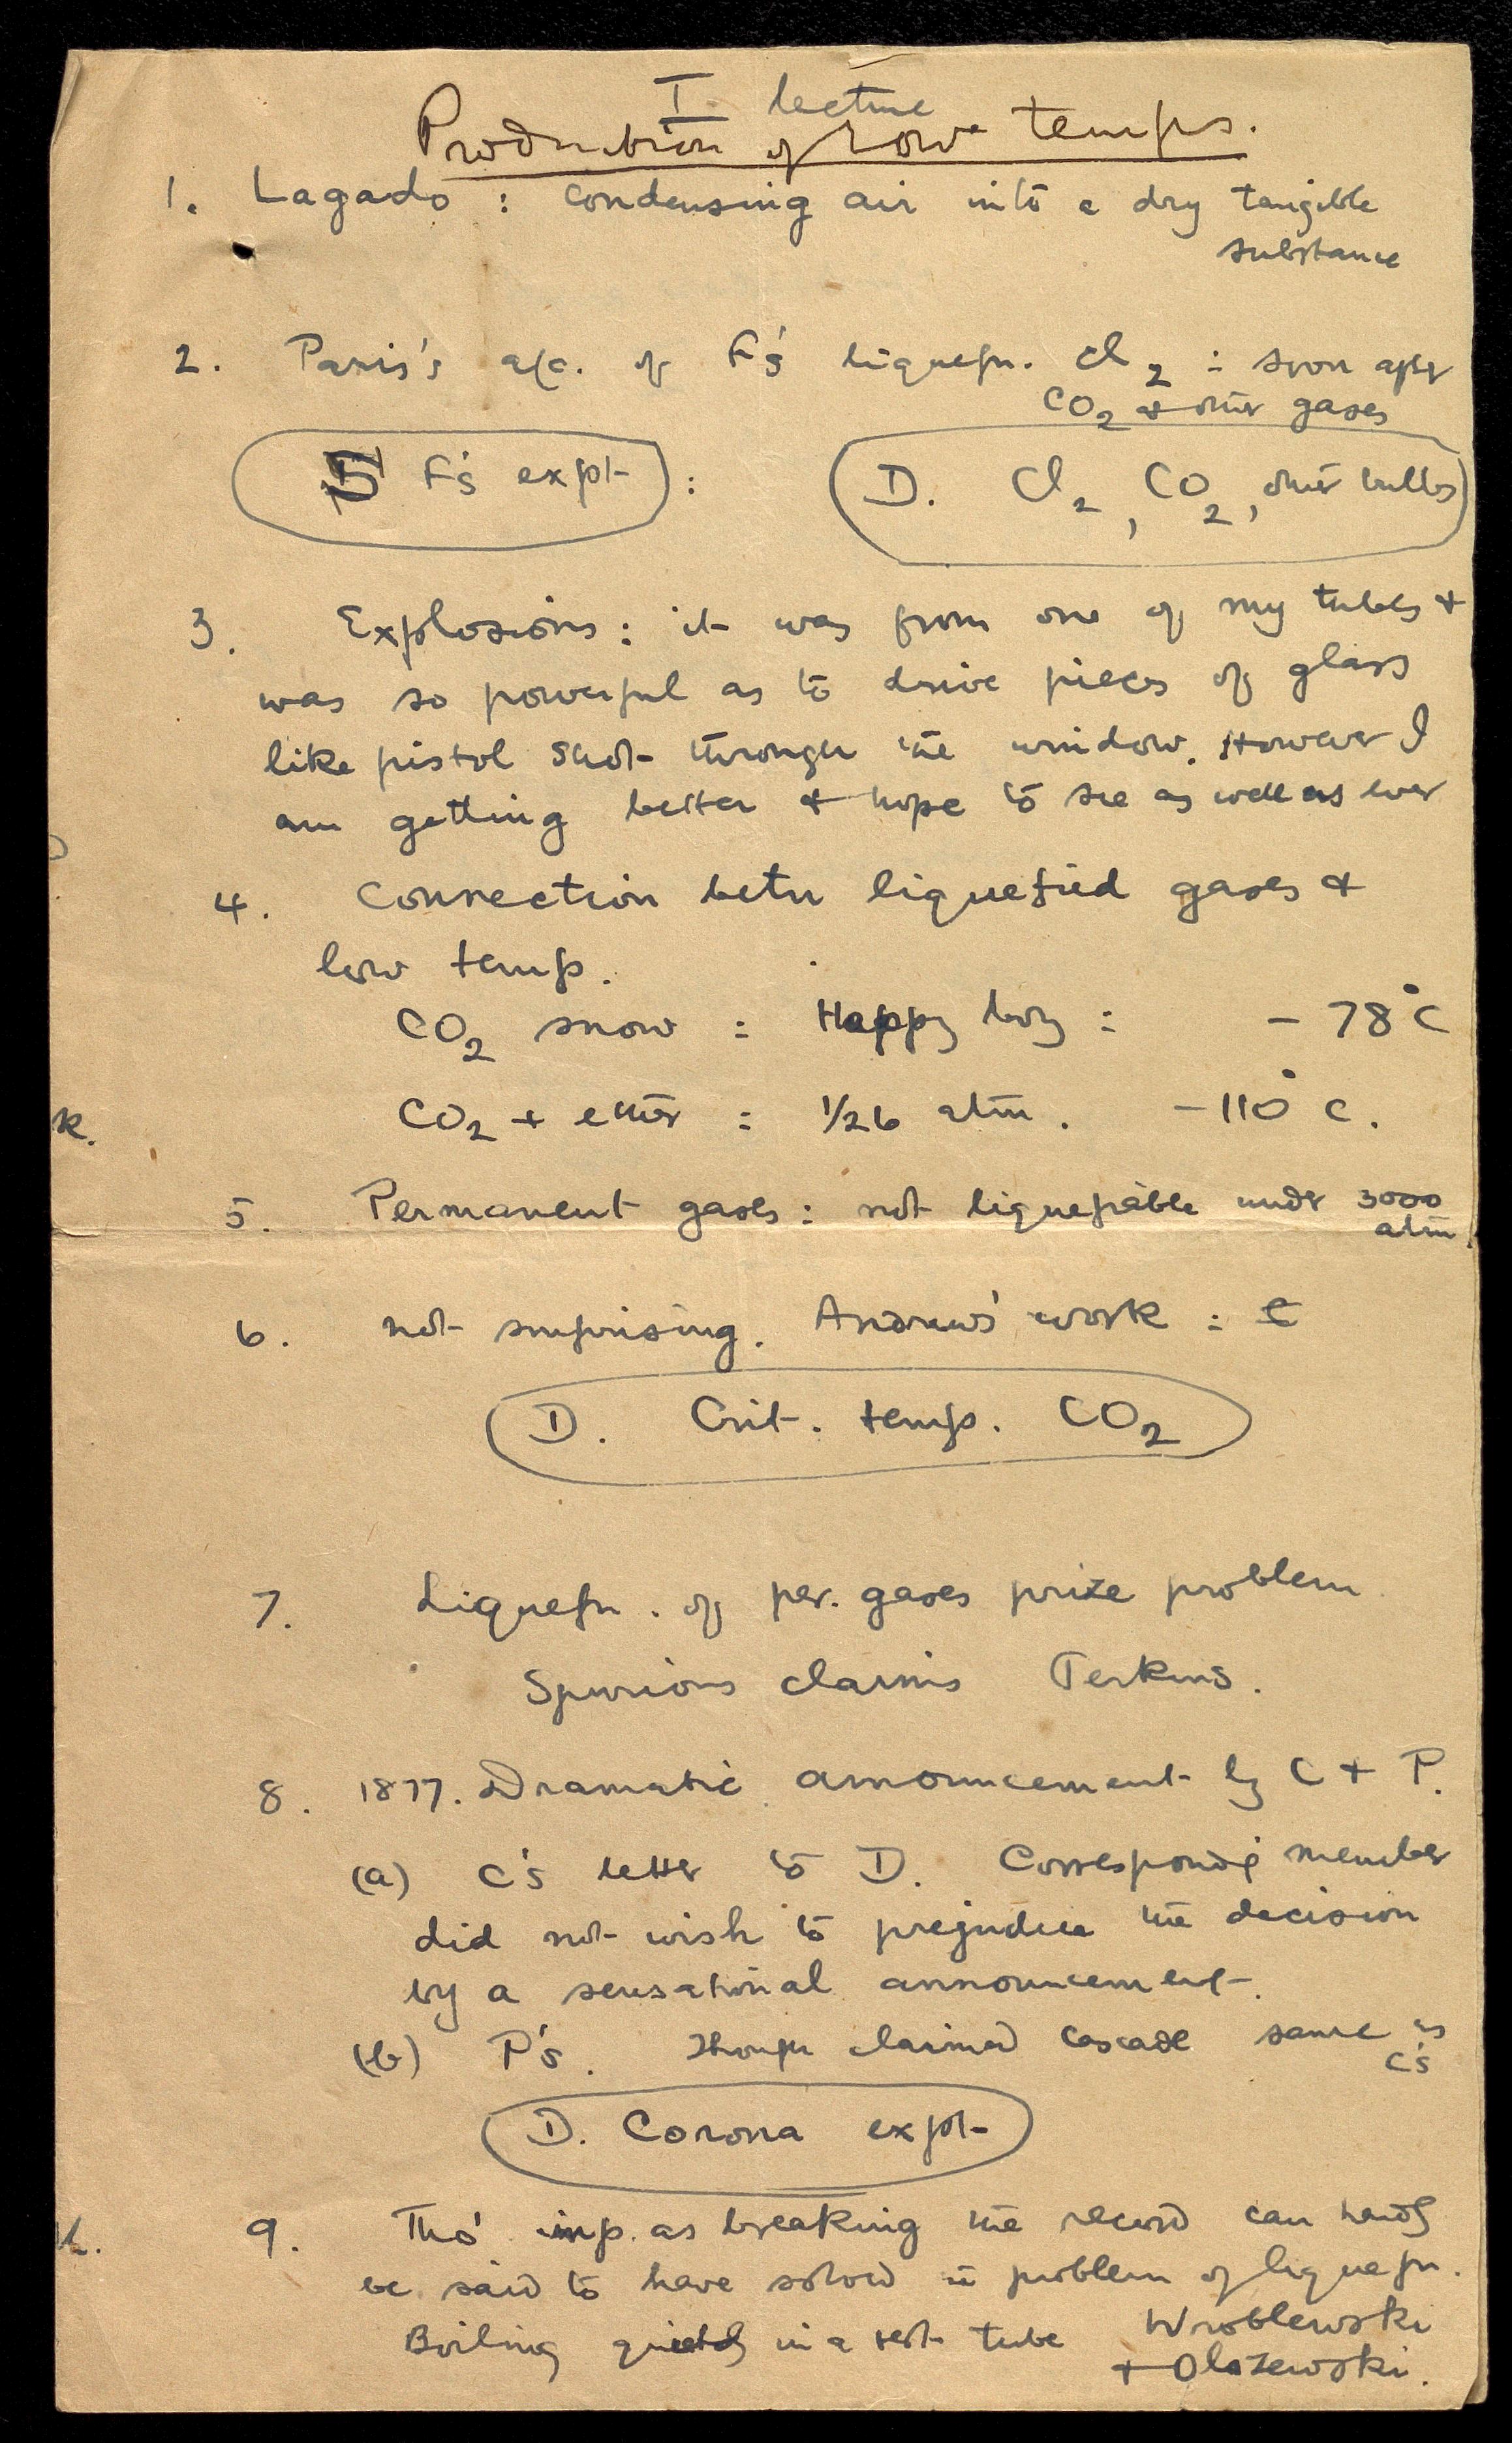 I. lecture
Production of Low temps.
1. Lagado : condensing air into a dry tangible
substance
2. Paris's a/c. of F's liquefn. Cl2 : soon after
CO2 + other gases
S F's expt :
D. Cl2, CO2, other bulbs
3. Explosions : it was from one of my tubes +
was so powerful as to drive pieces of glass
like pistol shot through the window. However I
am getting better + hope to see as well as ever
4. Connection betn liquefied gases +
low temp.
CO2 snow : Happy boy : - 78°C
CO2 + ether : 1/26 atm. - 110°C.
5. Permanent gases : not liquefiable under 3000
atm.
6. not surprising. Andrews' work :
D. Crit. temp. CO2
7. Liquefn. of per. gases prize problem
Spurious claims Perkins.
8. 1877. Dramatic announcement by C + P.
(a) C's letter to D. Correspondg member
did not wish to prejudice the decision
by a sensational announcement.
(b) P's. Though claimed cascade same as
C's
D. Corona expt
k.
9. Tho' imp. as breaking the record can hardly
be said to have solved the problem of liquefn.
Boiling quietly in a test tube Wroblewski
+ Olszewski.